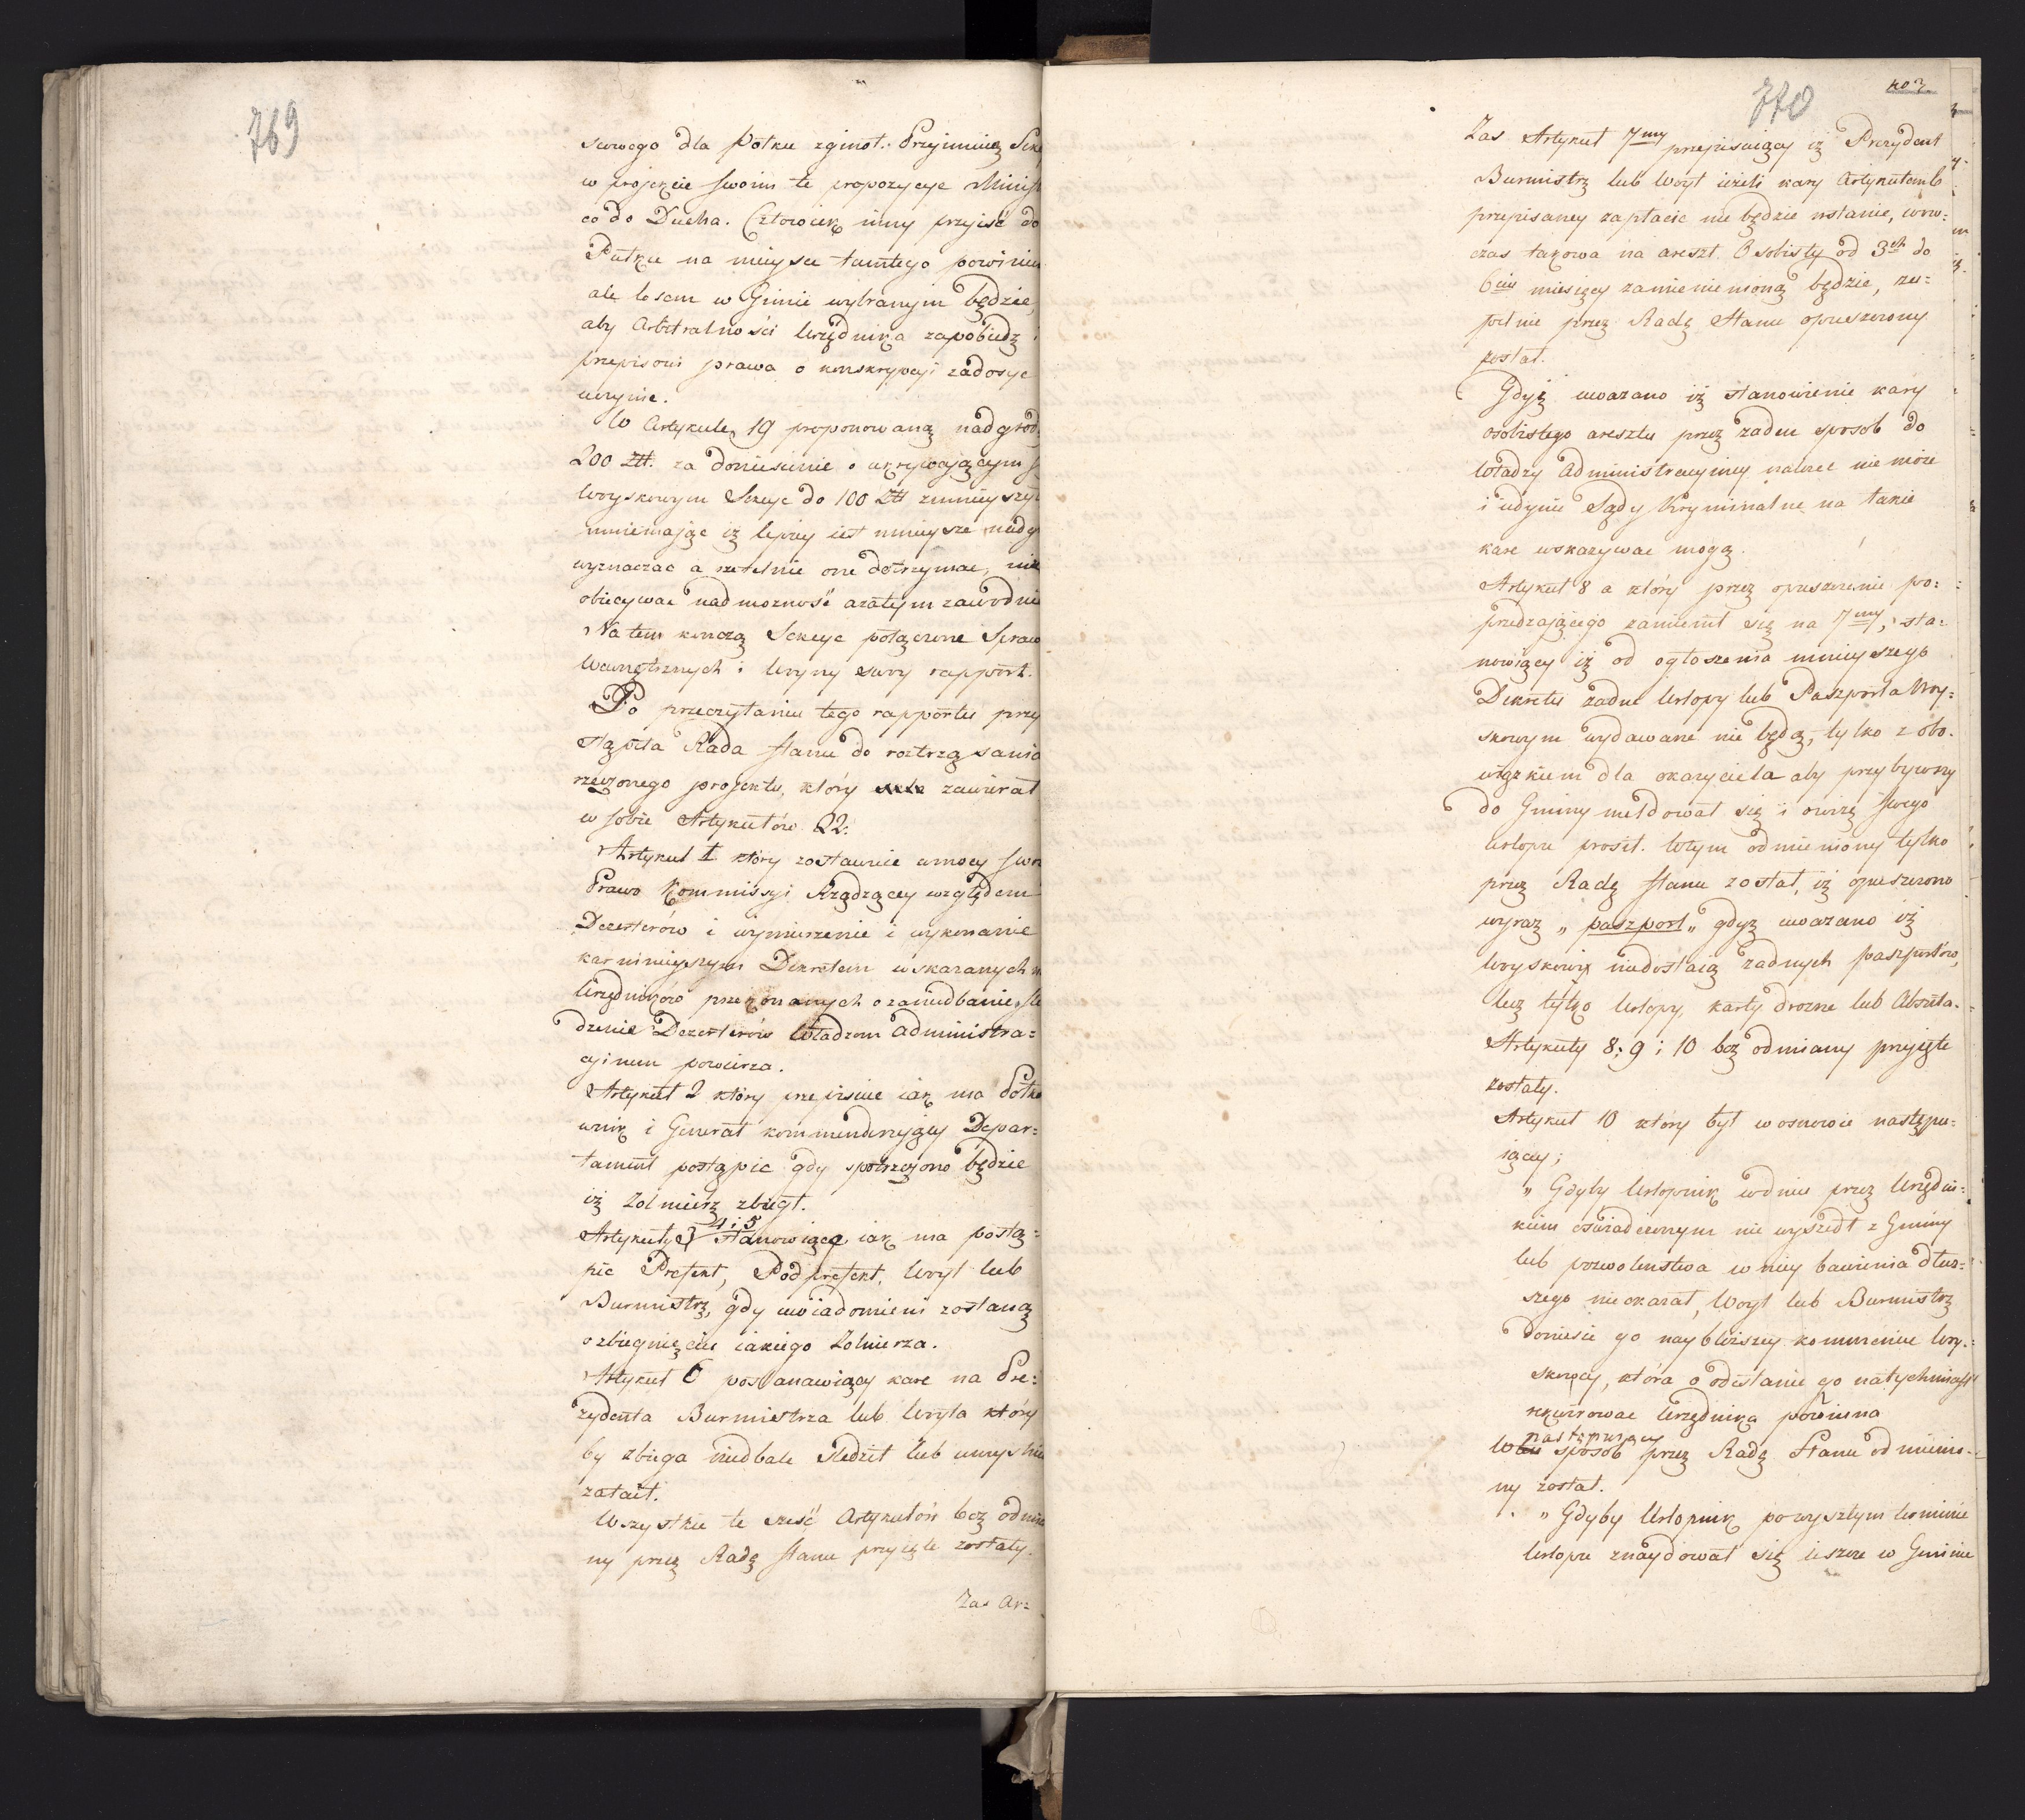 769
scowego dla Połku zginoł. Przyimuią Sek
w projekcie swoim te propozycye Minis
co do Ducha. Człowiek inny przyiść do
Pułku na mieysce tamtego powinien
ale losem w Gminie wybranym będzie,
aby Arbitralności Urzędnika zapobiedz i
przepisowi prawa o konskrypcyi zadosyc
uczynic.
W Artykule 19 proponowaną nadgrod
200 Złł. za doniesienie o ukrywaiącym s
Woyskowym Sekcye do 100 Złł zmnieyszył
mniemaiąc iż lepiey iest mnieysze nadg
wyznaczac a rzetelnie one dotrzymac, niż
obiecywac nad możność a zatym zawodnie
Na tem kończą Sekcye połączone Spraw
Wewnętrznych i Woyny swoy rapport.
Po przeczytaniu tego rapportu przy
stąpiła Rada Stanu do roztrząsania
rzeczonego projektu, który zawierał
w sobie Artykułów 22.
Artykuł 1 który zostawuie w mocy swo
Prawo Kommissyi Rządzącey względem
Dezerterów i wymierzenie i wykonanie
kar ninieyszym Dekretem wskazanych n
Urzędników przekonanych o zaniedbanie śle
dzenie Dezerterów Władzom administra=
cyinem powierza.
Artykuł 2 który przepisuie iak ma Połko
wnik i Generał kommenderuiący Depar=
tament postąpic gdy spostrzeżono będzie
iż Zołnierz zbiegł.
4 i 5
Artykuły 3 stanowiące iak ma postą=
pic Prefekt, Podprefekt, Woyt lub
Burmistrz, gdy uwiadomieni zostaną
o zbiegnięciu iakiego Zołnierza.
Artykuł 6 postanawiaiący kare na Pre=
zydenta Burmistrza lub Woyta który
by zbiega niedbale śledził lub umyslnie
zataił.
Wszystkie te sześć Artykułów bez odmia
ny przez Radę Stanu przyięte zostały.
Zas Ar=
770
403
Zas Artykuł 7my przepisuiący iż Prezydent
Burmistrz lub Woyt ieżeli kary Artykułem 6
przepisaney zapłacic nie będzie wstanie, wow=
czas takowa na areszt Osobisty od 3ch do
6ciu miesięcy zamienienioną będzie, zu=
pełnie przez Radę Stanu opuszczony
został.
Gdyż uwazano iż stanowienie kary
osobistego aresztu przez zaden sposob do
Władzy Administracyiney nalezec nie może
i iedynie Sądy Kryminalne na takie
kare wskazywac mogą.
Artykuł 8 a który przez opuszczenie po=
przedzaiącego zamienił się na 7my, sta=
nowiący iż od ogłoszenia ninieyszego
Dekretu żadne Urlopy lub Paszporta Woy=
skowym wydawane nie będą, tylko z obo=
wiązkiem dla okaziciela aby przybywszy
do Gminy meldował się i o wizę swego
Urlopu prosił. Wtym odmieniony tylko
przez Radę Stanu został, iż opuszczono
wyraz „ paszport „ gdyż uwazano iż
Woyskowi niedostaią żadnych paszportów,
lecz tylko Urlopy, karty drozne lub Abszta.
Artykuły 8; 9 i 10 bez odmiany przyięte
zostały.
Artykuł 10 który był w osnowie następu=
iącey;
„ Gdyby Urlopnik wdniu przez Urzędni=
kiem oswiadczonym nie wyszedł z Gminy
lub pozwolenstwa w niey bawienia dłuz=
szego nieokazał, Woyt lub Burmistrz
doniesie go naybliższey kommendzie Woy=
skowey, która o odesłanie go natychmiast
rekwirowac Urzędnika powinna
następuiący
W sposob przez Radę Stanu odmienio=
ny został.
„ Gdyby Urlopnik powyszłym terminie
Urlopu znaydował się ieszcze w Gminie